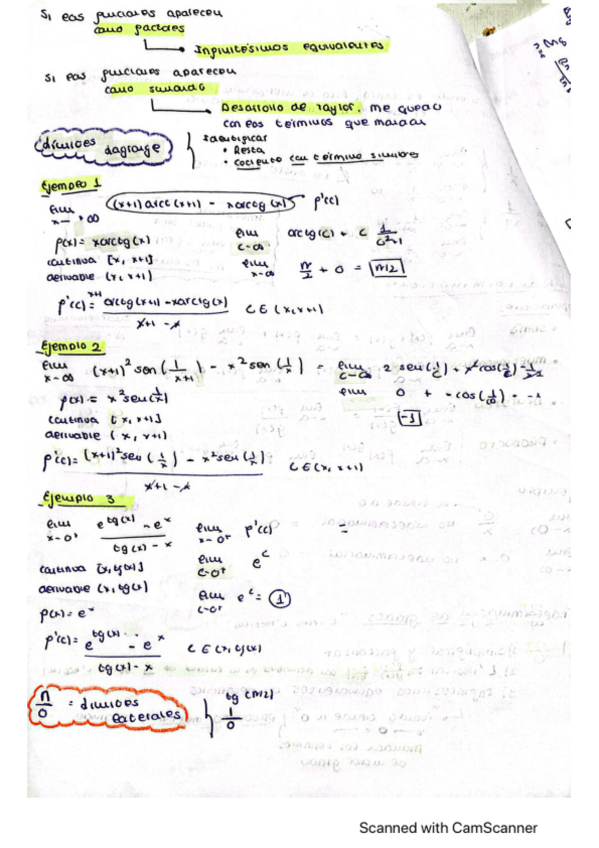 Si las funciones aparecen
como factores
Infinitésimos equivalentes
Si las funciones aparecen
como sumando
Desarrollo de Taylor, me quedo
con los términos que mandan
Límites Lagrange
Identificar
• Resta
• Cociente con término similar
Ejemplo 1
lim x→+∞ (x+1) arct (x+1) - x arctg (x) f'(c)
f(x) = x arctg (x)
lim c→∞ arctg(c) + c 1/(c²+1)
continua [x, x+1]
derivable (x, x+1)
lim x→∞ π/2 + 0 = π/2
f'(c) = (x+1 arctg (x+1) - x arctg (x))/(x+1 - x) C ∈ (x, x+1)
Ejemplo 2
lim x→∞ (x+1)² sen (1/(x+1)) - x² sen (1/x) = lim c→∞ 2 sen (1/c) +
f(x) = x² sen (1/x)
lim 0 + -cos (1/∞) = -1
continua [x, x+1]
-1
derivable (x, x+1)
f'(c) = ((x+1)² sen (1/x) - x² sen (1/x))/(x+1 - x) C ∈ (x, x+1)
Ejemplo 3
lim x→0⁺ (e^tg(x) - e^x)/(tg(x) - x) lim x→0⁺ f'(c) =
continua [x, tg(x)] lim c→0⁺ e^c
derivable (x, tg(x)) lim c→0⁺ e^c = 1
f(x) = e^x
f'(c) = (e^tg(x) - e^x)/(tg(x) - x) C ∈ (x, tg(x))
n/0 = límites
laterales
tg (π/2)
1/0
Scanned with CamScanner